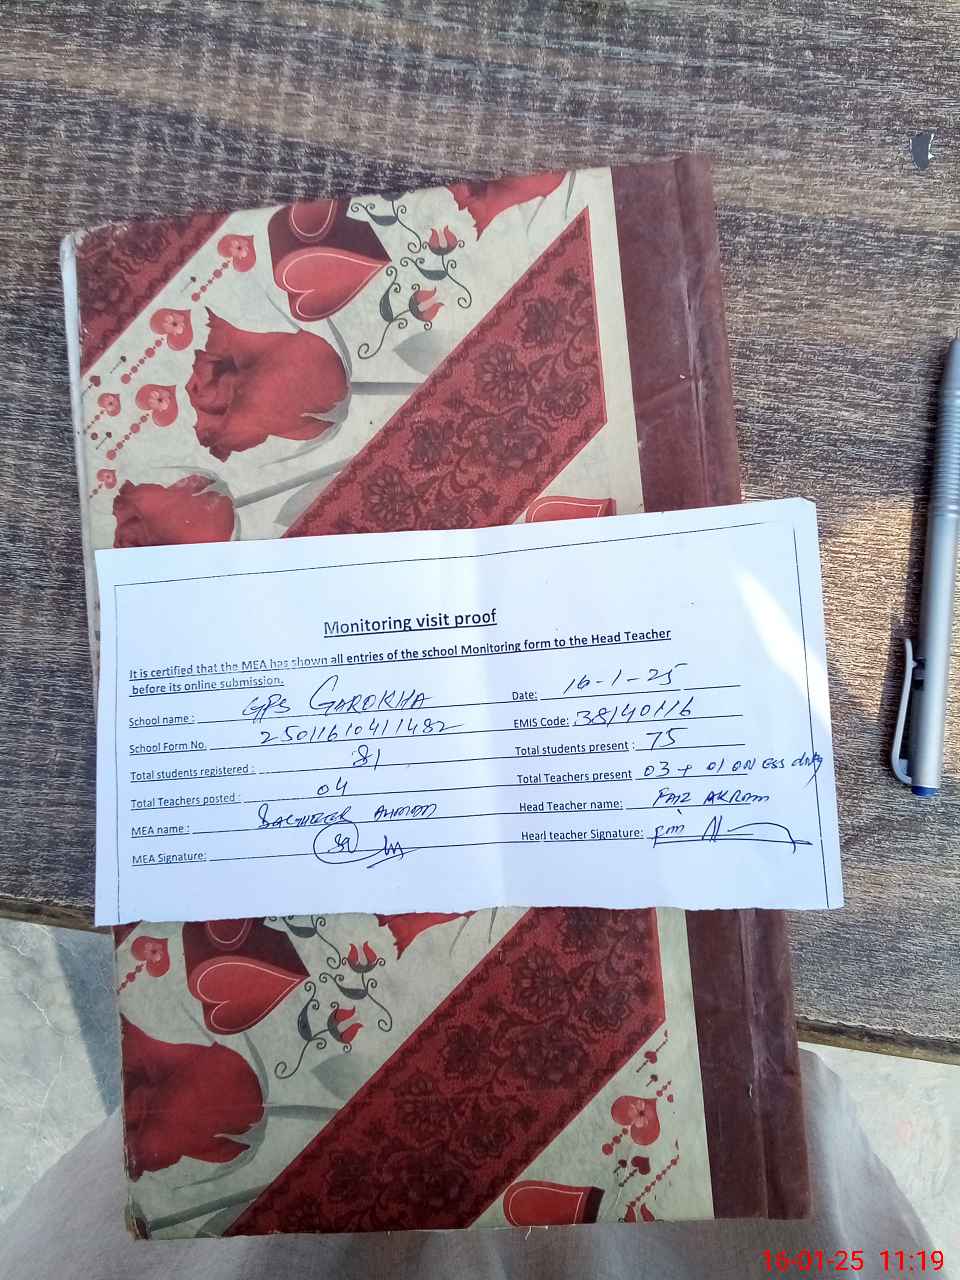 Monitoring visit proof
It is certified that the MEA has shown all entries of the school Monitoring form to the Head Teacher
before its online submission.
School name : GPS GAROKHA Date: 16-1-25
School Form No. 2501161041482 EMIS Code: 38140116
Total students registered : 81 Total students present : 75
Total Teachers posted : 04 Total Teachers present 03 + 01 ON ESS duty
MEA name : AHMAD Head Teacher name: AKRAM
MEA Signature: Head teacher Signature:
16-01-25 11:19